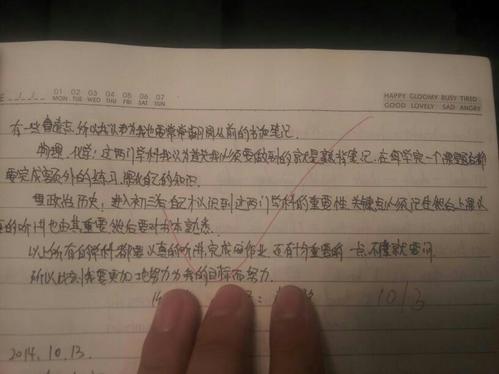 01 02 03 04 05 06 07
MON TUE WED THU FRI SAT SUN
HAPPY GLOOMY BUSY TIRED
GOOD LOVELY SAD ANGRY
有一些自卑点,所以我认为我也要常常翻阅从前的书和笔记.
物理、化学:这两门学科我认为首先我必须要做到的就是默书笔记.在每学完一个课题后都
要完成额外的练习,深化自己的知识.
政治历史,进入初三后自己才认识到这两门学科的重要性,关键点必须记住,课上
真的听讲也由其重要,然后要对书本熟悉.
以上所有的学科都要认真的听讲,完成作业,还有十分重要的一点,不懂就要问.
所以此刻我要更加地努力为我的目标而努力.
10/3
2014.10.13.